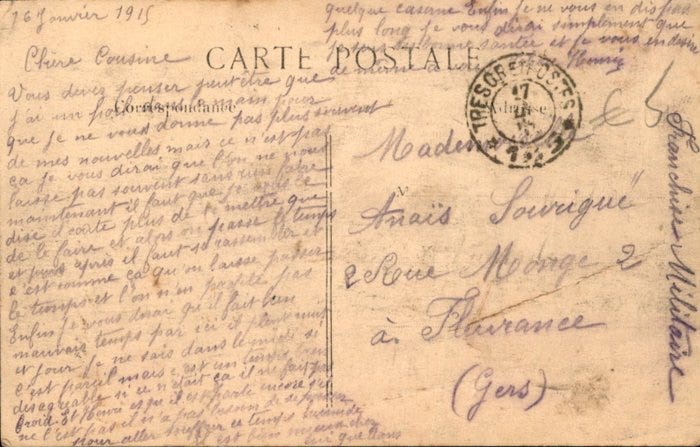 16 Janvier 1915
Chère Cousine
CARTE POSTALE
Correspondance
Adresse
Vous devez penser peut être que
j'ai un poil dans la main pour
que je ne vous donne pas plus souvent
de mes nouvelles mais ce n'est pas
ça je vous dirai que l'on ne nous
laisse pas souvent sans rien faire
maintenant il faut que je vous
dise d'carte plus de mettre que
de le faire et alors on passe le temps
et puis après il faut se rassembler et
c'est comme ça qu'on laisse passer
le temps et l'on n'en profite pas
Enfin je vous dirai qu'il fait un
mauvais temps par ici il pleut nuit
et jour je ne sais dans le midi si
c'est pareil mais c'est un temps bien
désagreable si ce n'était ça il ne fait pas
froid. Et Henri est qu'il est parti encore s'il
ne l'est pas il n'a pas besoin de se presser
pour aller souffrir ce temps
est bien mieux chez
lui que dans
quelque caserne Enfin je ne vous en dis pas
plus long je vous dirai simplement que
je suis en bonne santée et je vous en désire
de meme a
TRESOR ET POSTES
17
15
Mademoiselle
Anaïs Souriguè
2 Rue Monge 2
à Fleurance
(Gers)
Franchise Militaire